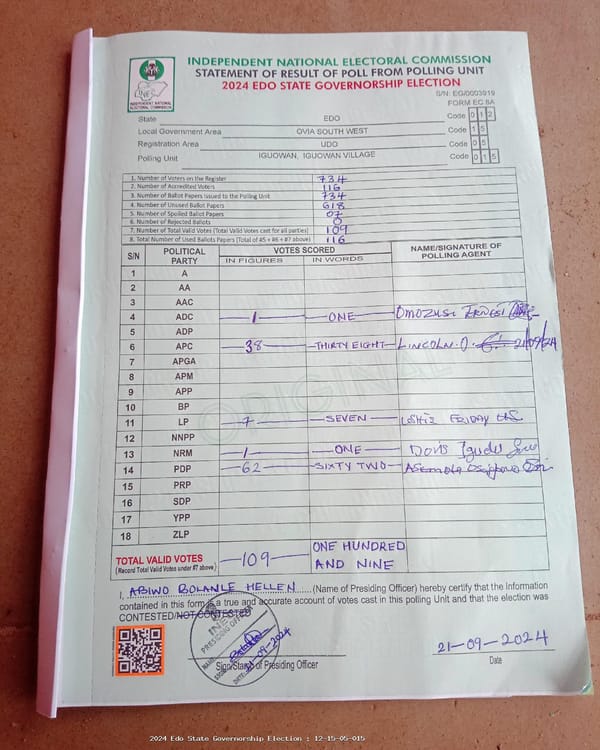 INDEPENDENT NATIONAL ELECTORAL COMMISSION
STATEMENT OF RESULT OF POLL FROM POLLING UNIT
2024 EDO STATE GOVERNORSHIP ELECTION
INDEPENDENT NATIONAL ELECTORAL COMMISSION
S/N: EG/0003919
FORM EC 8A
State EDO Code 0 1 2
Local Government Area OVIA SOUTH WEST Code 1 5
Registration Area UDO Code 0 5
Polling Unit IGUOWAN, IGUOWAN VILLAGE Code 0 1 5
1. Number of Voters on the Register 734
2. Number of Accredited Voters 116
3. Number of Ballot Papers Issued to the Polling Unit 734
4. Number of Unused Ballot Papers 618
5. Number of Spoiled Ballot Papers 07
6. Number of Rejected Ballots 0
7. Number of Total Valid Votes (Total Valid Votes cast for all parties) 109
8. Total Number of Used Ballots Papers (Total of #5 + #6 + #7 above) 116
S/N POLITICAL PARTY VOTES SCORED NAME/SIGNATURE OF POLLING AGENT
IN FIGURES IN WORDS
1 A
2 AA
3 AAC
4 ADC 1 ONE OMOZUSI ERNEST
5 ADP
6 APC 38 THIRTY EIGHT LINCOLN.O. 21/09/24
7 APGA
8 APM
9 APP
10 BP
11 LP 7 SEVEN FRIDAY
12 NNPP
13 NRM 1 ONE Doris
14 PDP 62 SIXTY TWO
15 PRP
16 SDP
17 YPP
18 ZLP
ORIGINAL
TOTAL VALID VOTES 109 ONE HUNDRED AND NINE
(Record Total Valid Votes under #7 above)
I, ABIWO BOLANLE HELLEN (Name of Presiding Officer) hereby certify that the Information
contained in this form is a true and accurate account of votes cast in this polling Unit and that the election was
CONTESTED/NOT CONTESTED
INEC
PRESIDING OFFICER
21-09-2024
Sign/Stamp of Presiding Officer
21-09-2024
Date
2024 Edo State Governorship Election : 12-15-05-015